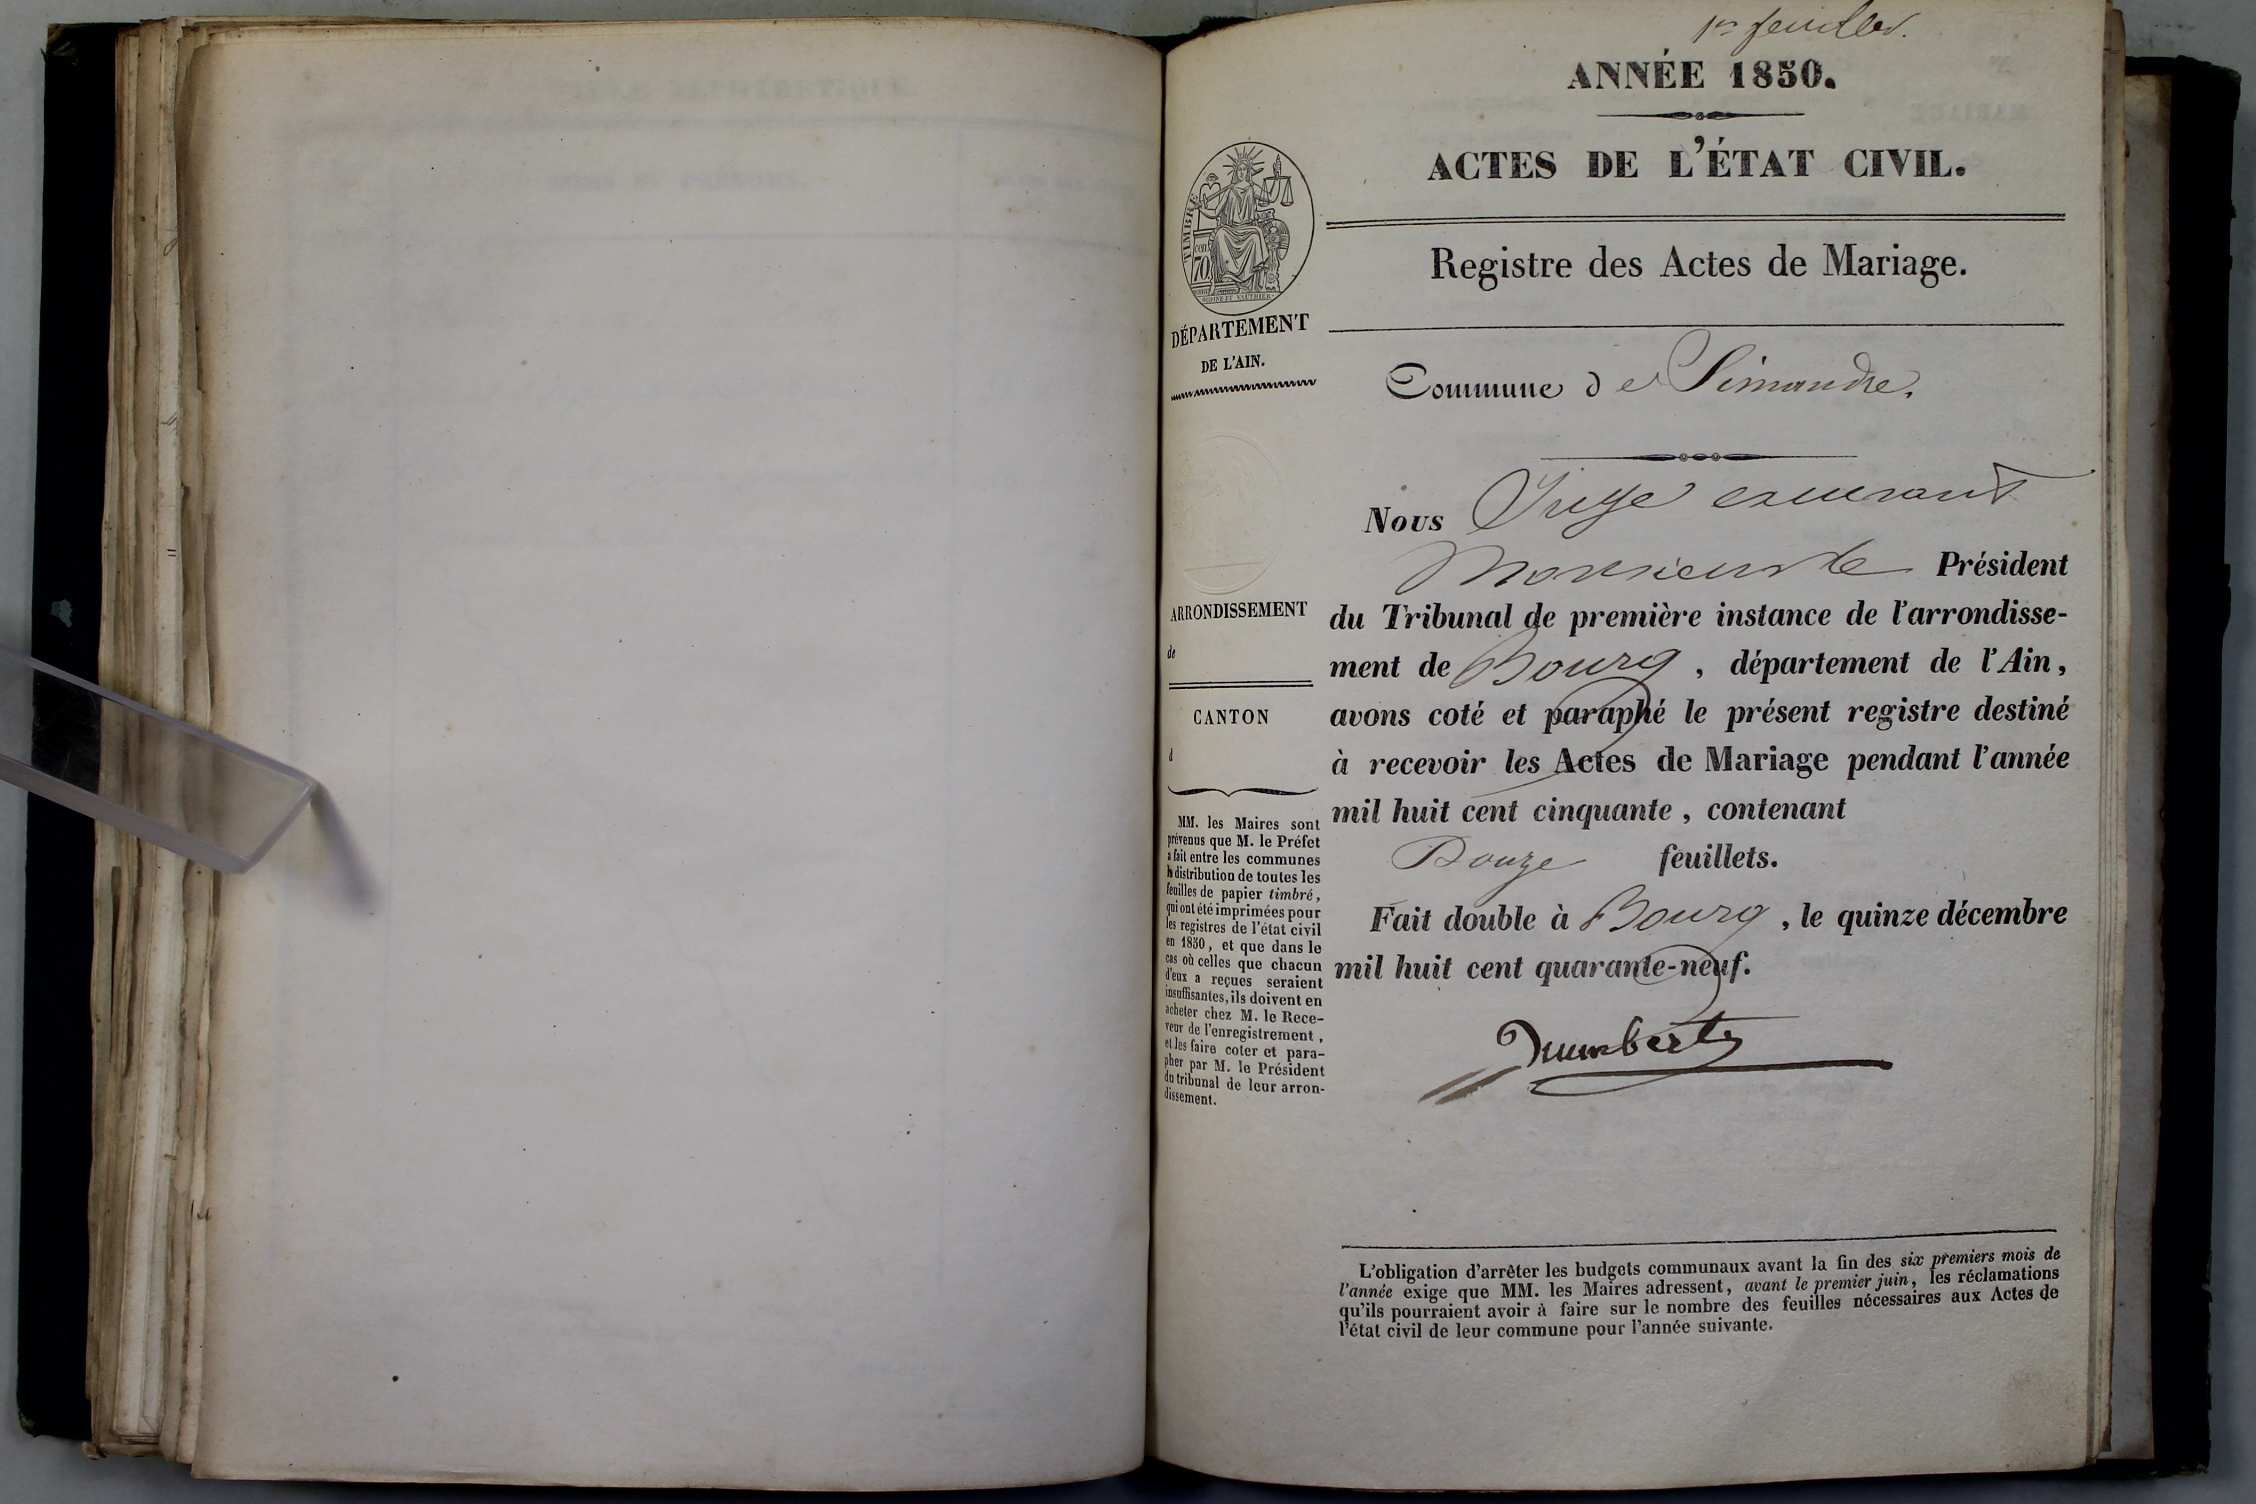 1er feuillet.
ANNÉE 1850.
ACTES DE L'ÉTAT CIVIL.
Registre des Actes de Mariage.
TIMBRE
cen.
70
DÉPARTEMENT
DE L'AIN.
Commune de Simandre.
Nous Juge
Monsieur le Président
du Tribunal de première instance de l'arrondisse-
ment de Bourg, département de l'Ain,
avons coté et paraphé le présent registre destiné
à recevoir les Actes de Mariage pendant l'année
mil huit cent cinquante, contenant
Douze feuillets.
Fait double à Bourg, le quinze décembre
mil huit cent quarante-neuf.
ARRONDISSEMENT
de
CANTON
d
MM. les Maires sont
prévenus que M. le Préfet
a fait entre les communes
la distribution de toutes les
feuilles de papier timbré,
qui ont été imprimées pour
les registres de l'état civil
en 1850, et que dans le
cas où celles que chacun
d'eux a reçues seraient
insuffisantes, ils doivent en
acheter chez M. le Rece-
veur de l'enregistrement,
et les faire coter et para-
pher par M. le Président
du tribunal de leur arron-
dissement.
L'obligation d'arrêter les budgets communaux avant la fin des six premiers mois de
l'année exige que MM. les Maires adressent, avant le premier juin, les réclamations
qu'ils pourraient avoir à faire sur le nombre des feuilles nécessaires aux Actes de
l'état civil de leur commune pour l'année suivante.